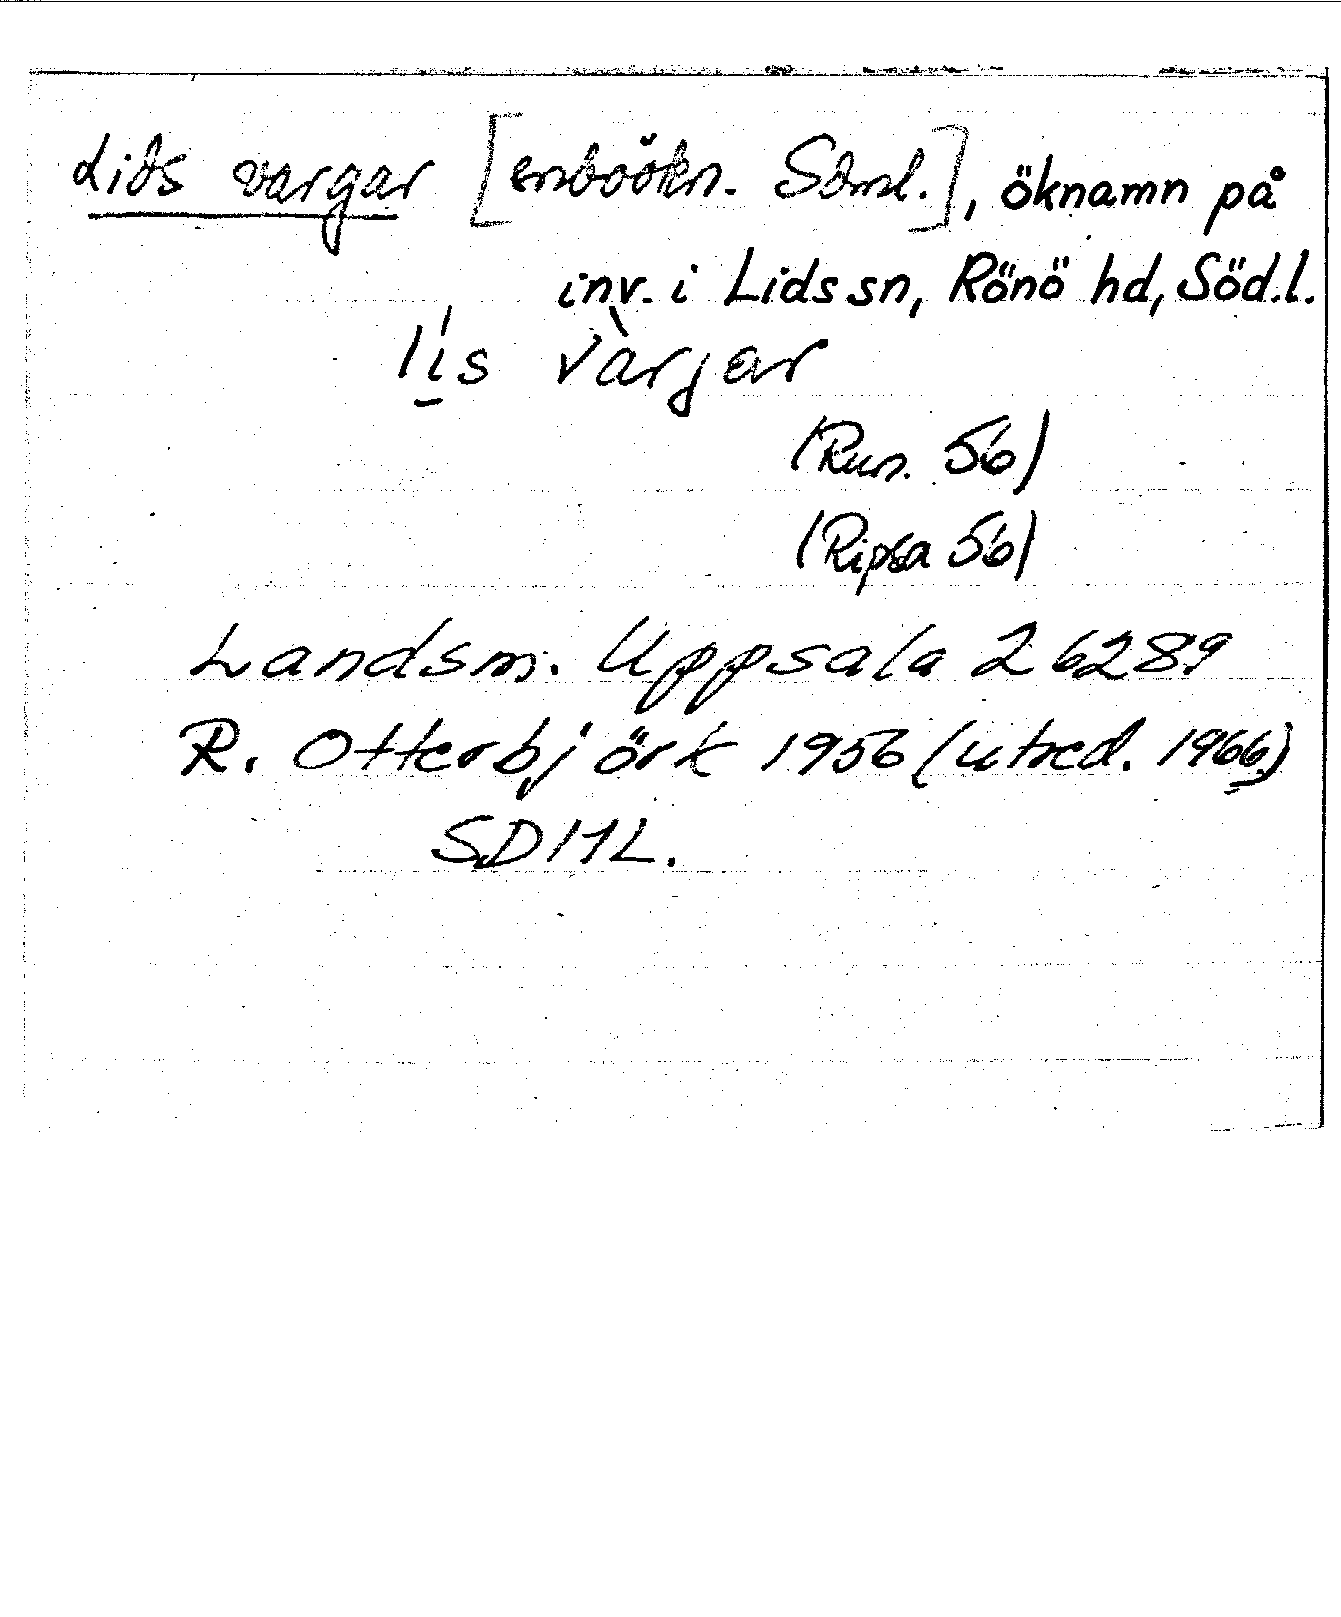 Lids vargar [inboökn. Söml.], öknamn på
inv. i Lids sn, Rönö hd, Söd.l.
lı̲́s vàrjar
(Run. 56)
(Ripsa 56)
Landsm. Uppsala 26289
R. Otterbjörk 1956 (utred. 1966)
SDML.